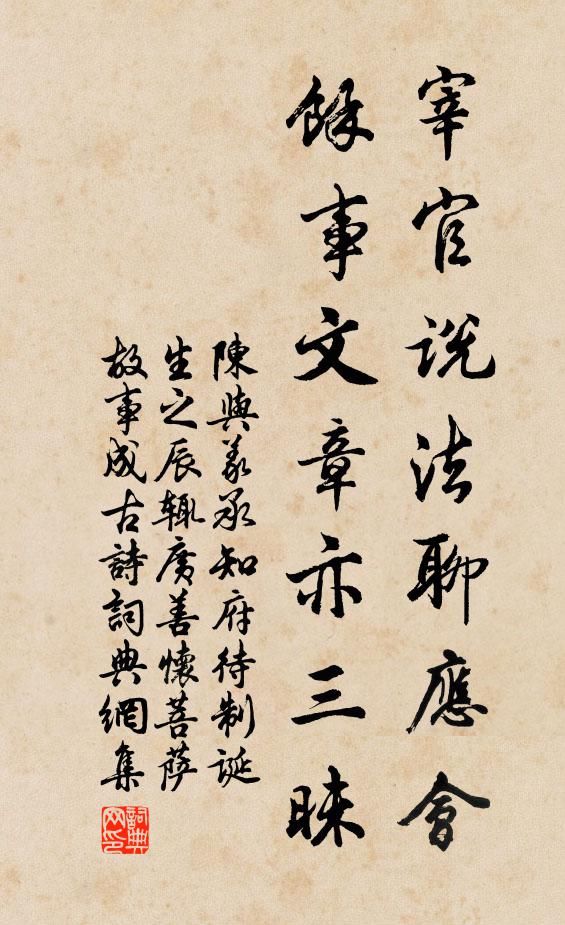 宰官说法聊應會
餘事文章亦三昧
陳與義承知府待制誕
生之辰辄廣善懷菩薩
故事成古詩詞典網集
詞典網印